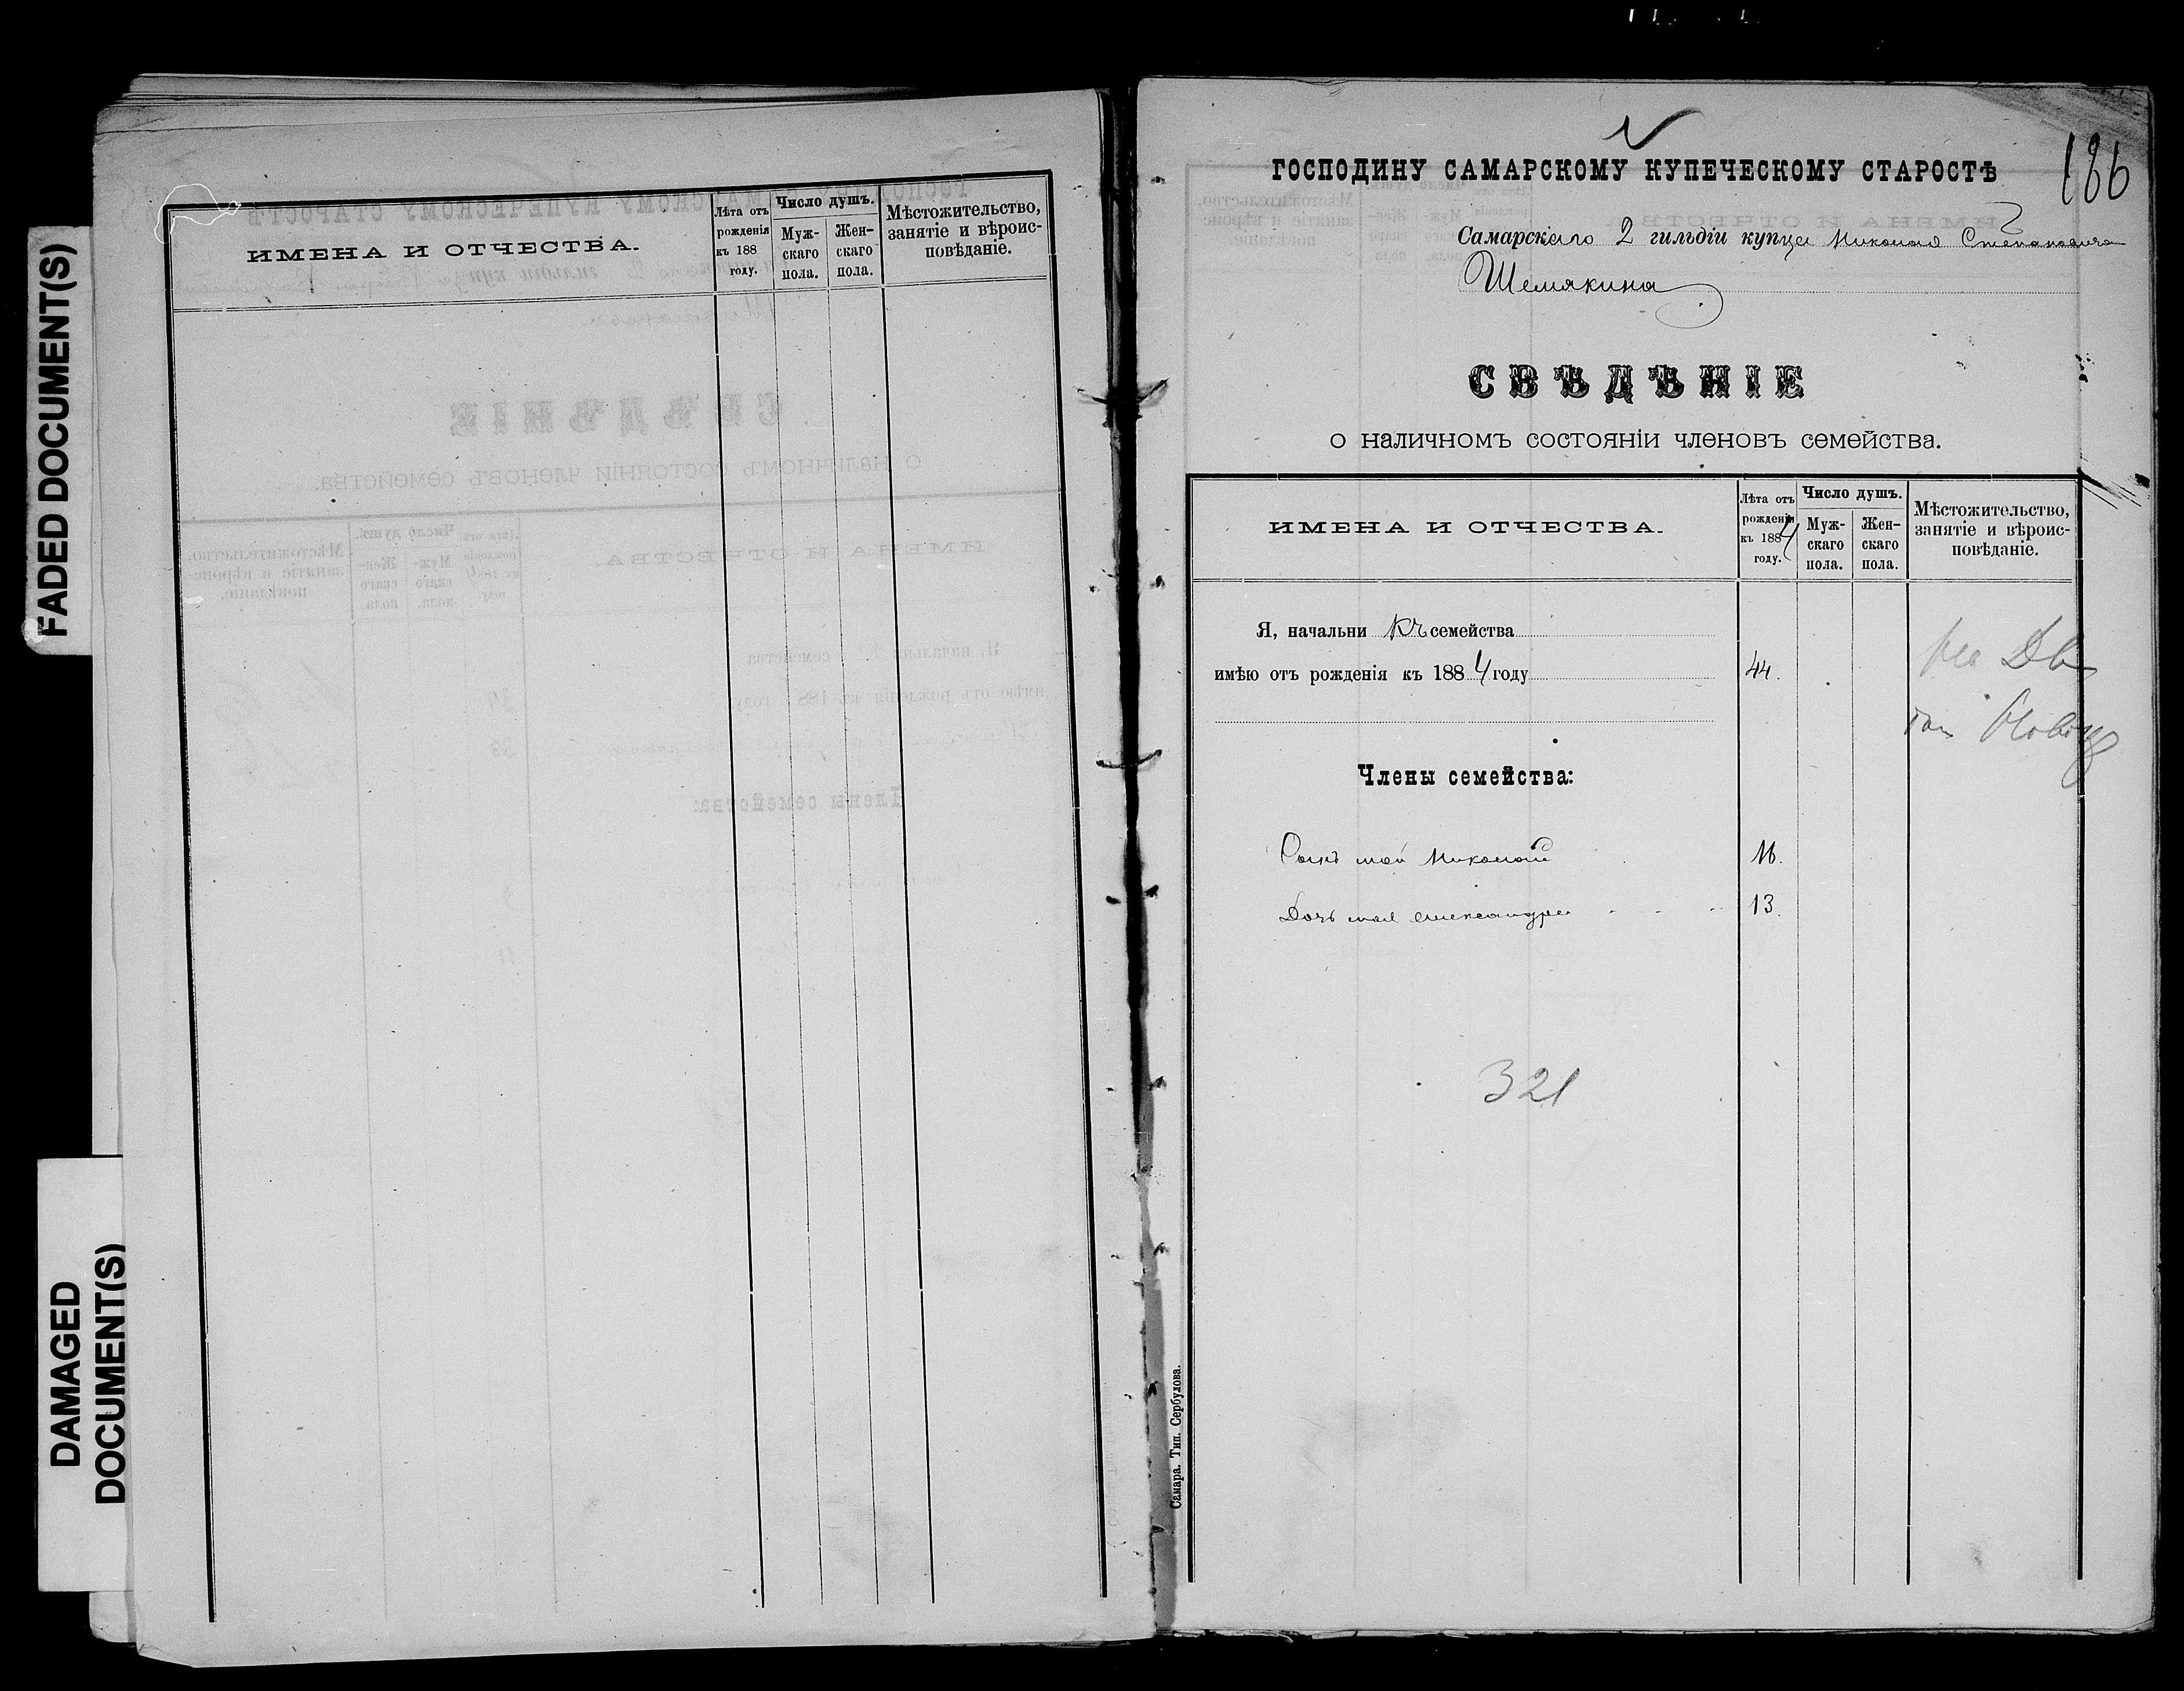 FADED DOCUMENT(S)
DAMAGED
DOCUMENT(S)
ИМЕНА И ОТЧЕСТВА.
Лѣта отъ
рожденія
къ 188
году.
Число душъ.
Муж-
скаго
пола.
Жен-
скаго
пола.
Мѣстожительство,
занятіе и вѣроис-
повѣданіе.
186
ГОСПОДИНУ САМАРСКОМУ КУПЕЧЕСКОМУ СТАРОСТѢ
Самарскаго 2 гильдіи купца Николая Степановича
Шемякина
СВѢДѢНІЕ
о наличномъ состояніи членовъ семейства.
ИМЕНА И ОТЧЕСТВА.
Лѣта отъ
рожденія
къ 1884
году.
Число душъ.
Муж-
скаго
пола.
Жен-
скаго
пола.
Мѣстожительство,
занятіе и вѣроис-
повѣданіе.
Я, начальникъ семейства
имѣю отъ рожденія къ 1884 году 44.
Члены семейства:
Сынъ мой Николай 16.
Дочь моя Александра 13.
321
Самара. Тип. Сербулова.